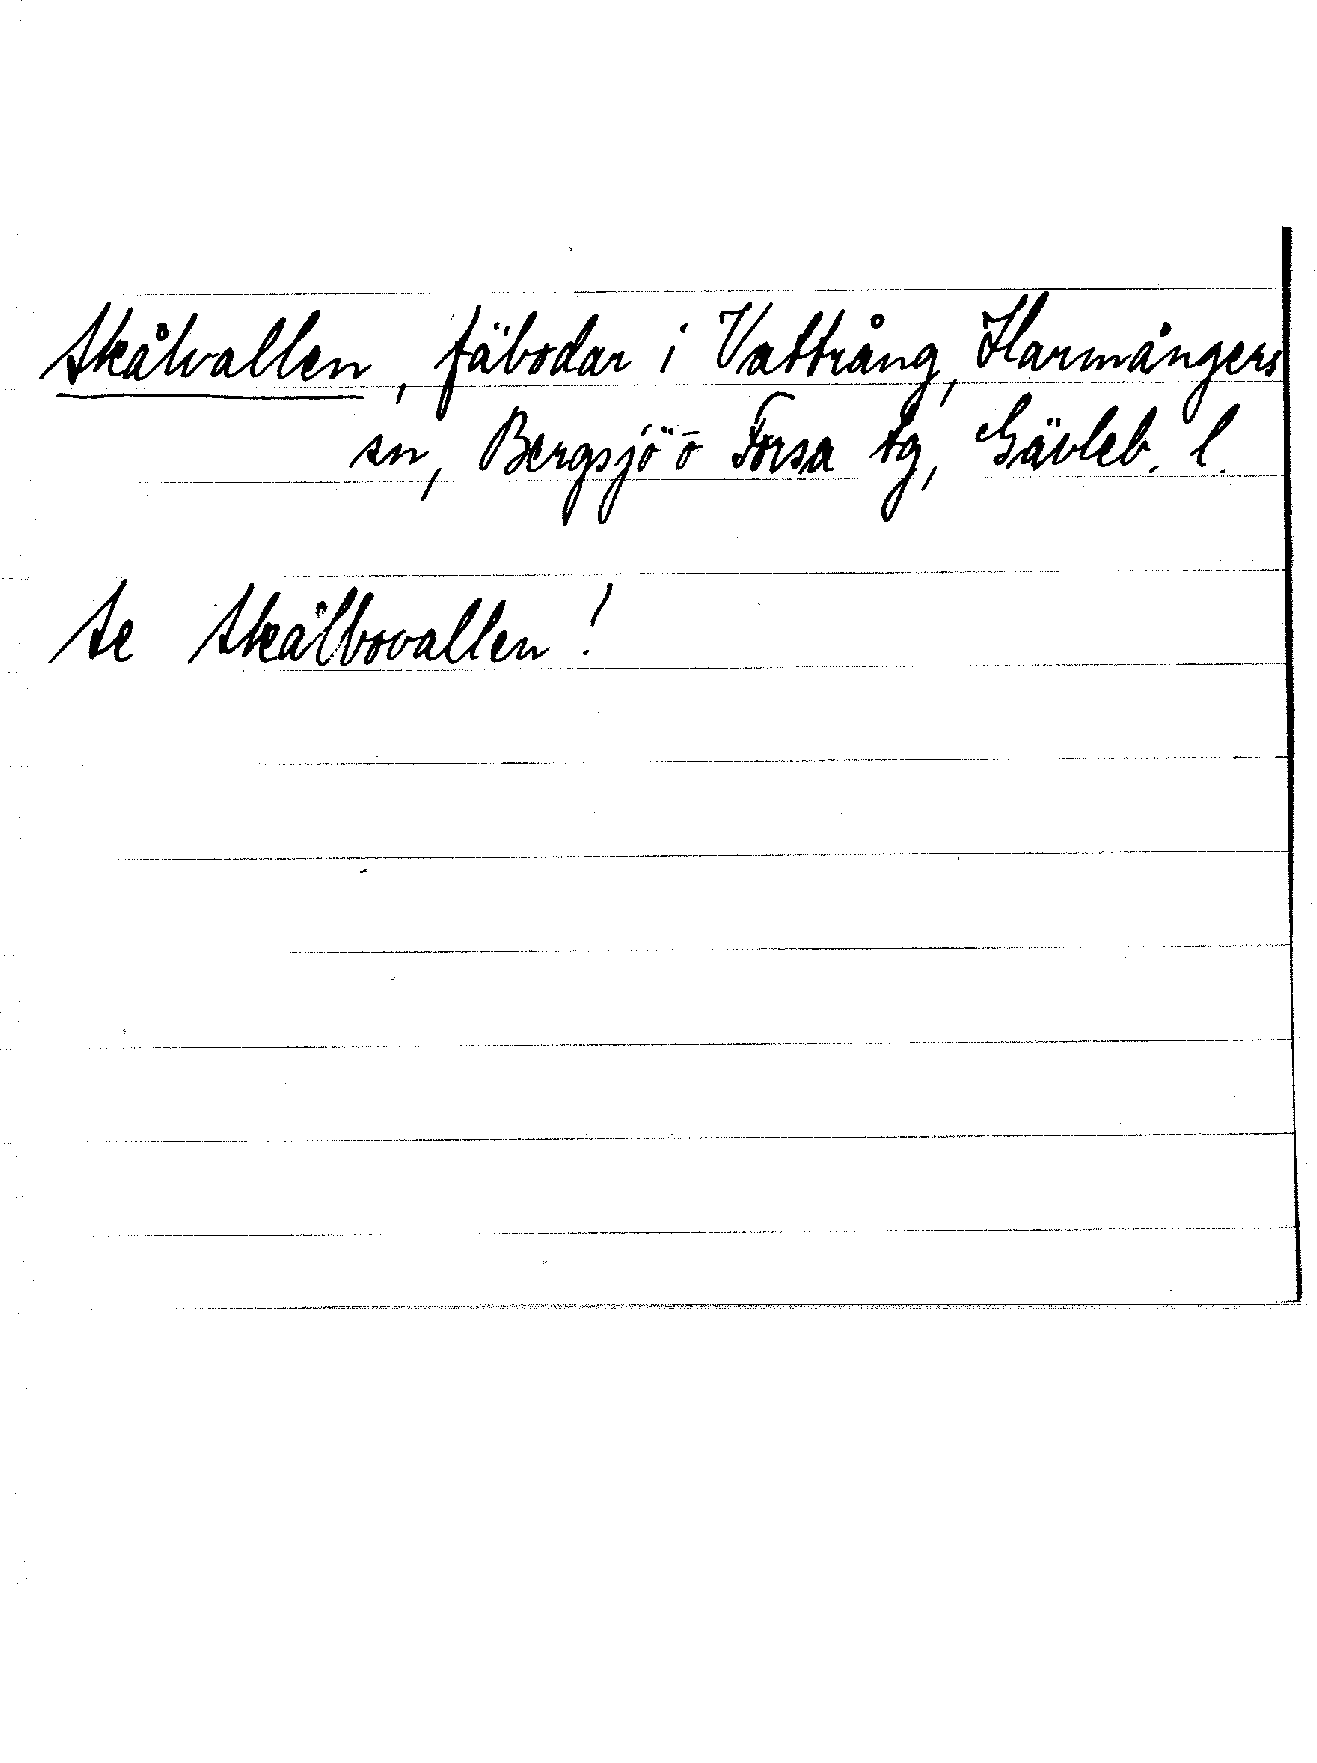 Skålvallen, fäbodar i Vattrång, Harmångers
sn, Bergsjö o Forsa tg, Gävleb. l.
Se Skålbovallen!